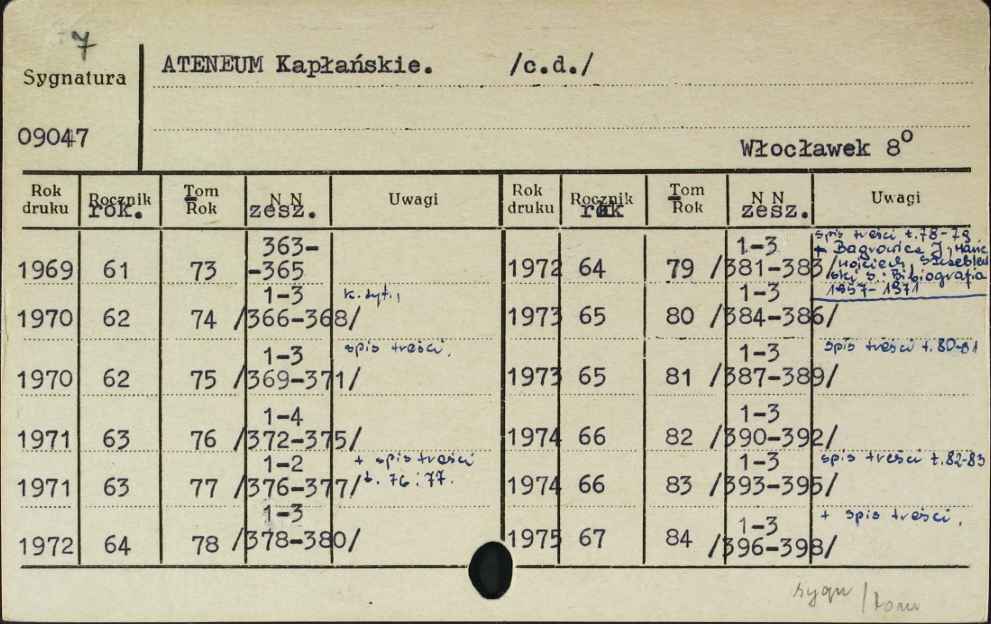 7
Sygnatura
ATENEUM Kapłańskie. /c.d./
09047
Włocławek 8°
Rok druku Rocznik rok. Tom Rok N N zesz. Uwagi
1969 61 73 363-
-365
1970 62 74 1-3
/366-368/ k. tyt.,
1970 62 75 1-3
/369-371/ spis treści.
1971 63 76 1-4
/372-375/
1971 63 77 1-2
/376-377/ + spis treści
t. 76 i 77.
1972 64 78 1-3
/378-380/
Rok druku Rocznik rok Tom Rok N N zesz. Uwagi
1972 64 79 1-3
/381-383/ spis treści t. 78-79
+ Bagrowicz J,
Wojciech
s. Bibliografia
1957-1971
1973 65 80 1-3
/384-386/
1973 65 81 1-3
/387-389/ spis treści t. 80-81
1974 66 82 1-3
/390-392/
1974 66 83 1-3
/393-395/ spis treści t. 82-83
1975 67 84 1-3
/396-398/ + spis treści.
sygn / tom